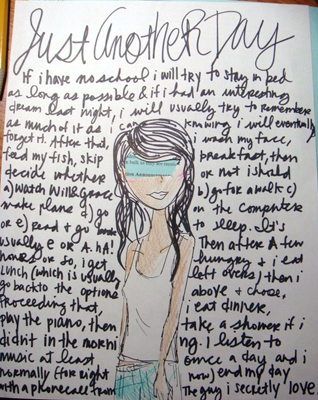 Just Another Day
If i have no school i will try to stay in bed
as long as possible & if i had an interesting
dream last night, i will usually try to remember
as much of it as i can knowing i will eventually
forget it. After that, i wash my face,
feed my fish, skip breakfast, then
decide whether or not i should
a) watch Will & Grace b) go for a walk c)
make plans d) go on the computer
or e) Read & go back to sleep. It's
usually e or A. hA! Then after A few
hours or so, i get hungry & i eat
Lunch (which is usually left overs) then i
go back to the options above & chose,
Proceeding that, i eat dinner,
play the piano, then take a shower if i
didn't in the morning. I listen to
music at least once a day and i
normally (for right now) end my day
with a phonecall from The guy i secretly love.